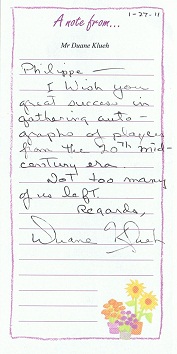 1-27-11
A note from...
Mr Duane Klueh
Philippe —
I wish you
great success in
gathering auto-
graphs of players
from the 20th mid-
century era.
Not too many
of us left.
Regards,
Duane Klueh